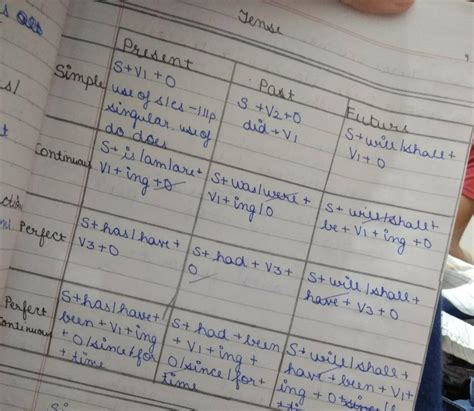 Tense
Present
Past
Future
Simple
S+V1+O
use of s/es -IIIp
singular. use of
do does
S+V2+O
did+V1
S+will/shall+
V1+O
Continuous
S+is/am/are+
V1+ing+O
S+was/were+
V1+ing/O
S+will/shall+
be+V1+ing+O
Perfect
S+has/have+
V3+O
S+had+V3+
O
S+will/shall+
have+V3+O
Perfect
Continuous
S+has/have+
been+V1+ing
+O/since/for
+time
S+had+been
+V1+ing+
O/since/for+
time
S+will/shall+
have+been+V1+
ing+O+since
+time